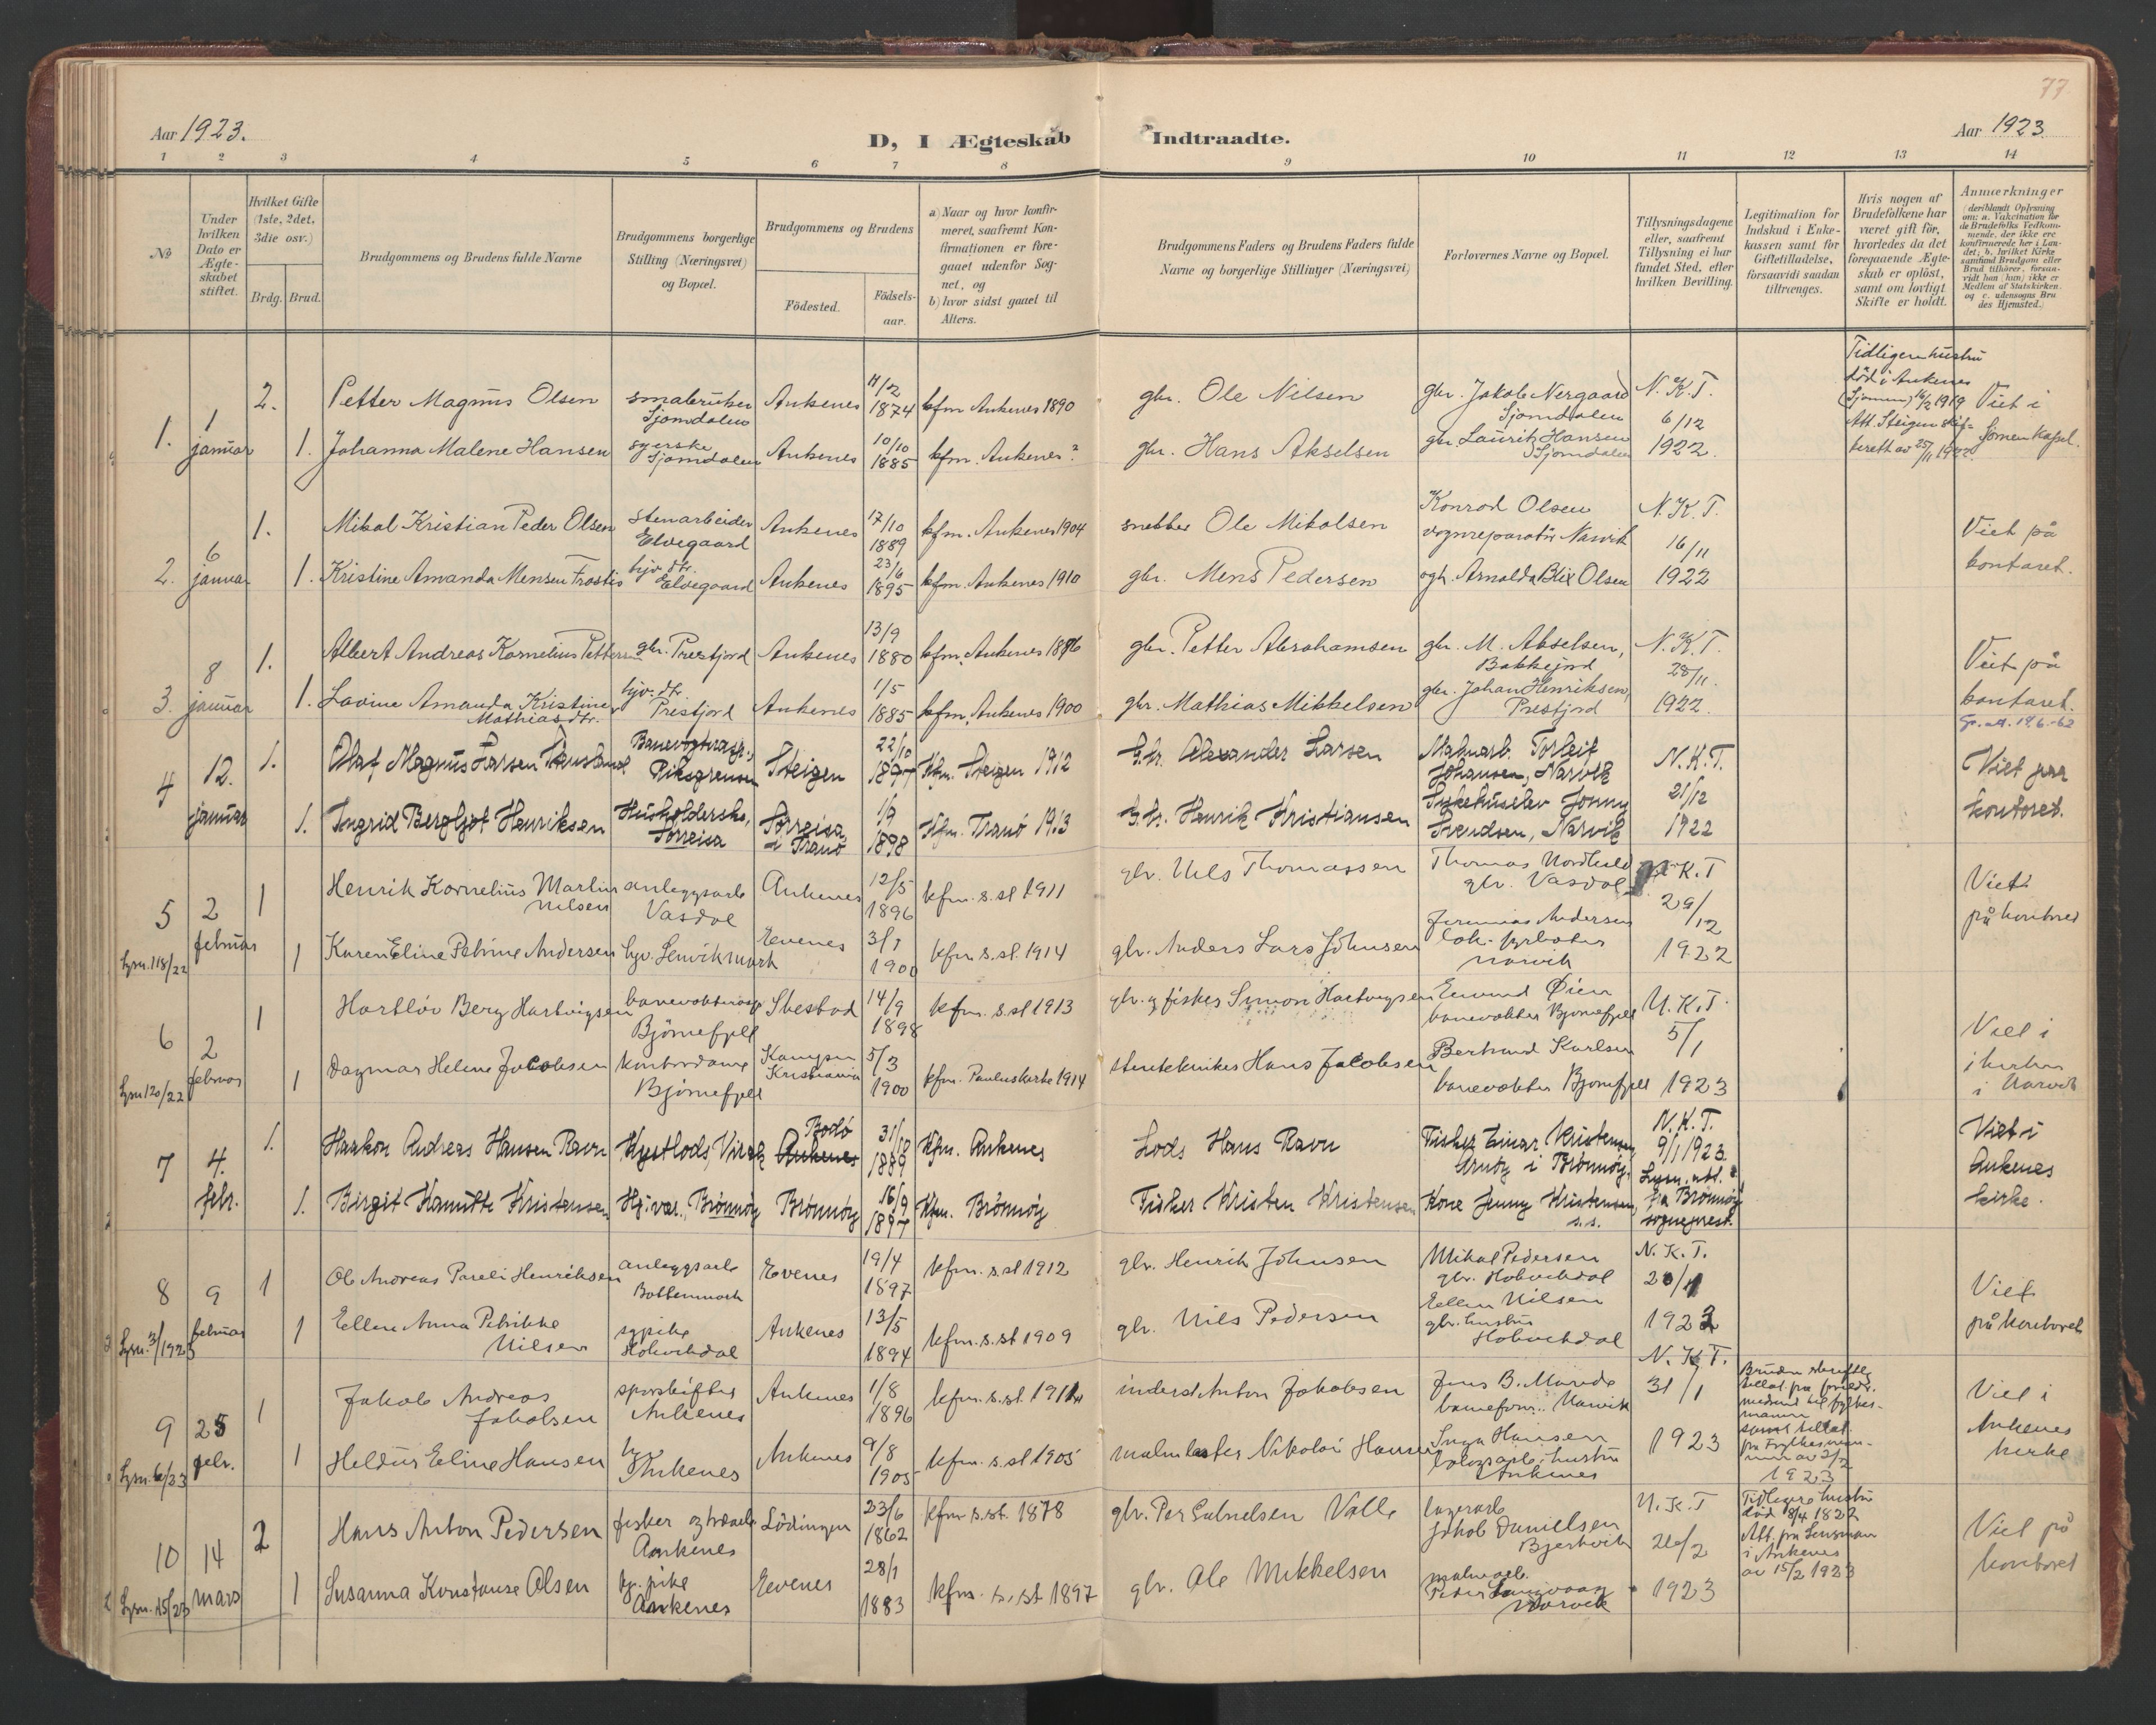 77.
Aar 1923.
D, I Ægteskab Indtraadte.
Aar 1923.
1 2 3 4 5 6 7 8 9 10 11 12 13 14
No
Under hvilken Dato er Ægteskabet stiftet.
Hvilket Gifte (1ste, 2det, 3die osv.)
Brdg. Brud.
Brudgommens og Brudens fulde Navne
Brudgommens borgerlige Stilling (Næringsvei) og Bopæl.
Brudgommens og Brudens
Födested.
Födsels-aar.
a) Naar og hvor konfir-
meret, saafremt Kon-
firmationen er fore-
gaaet udenfor Sog-
net, og
b) hvor sidst gaaet til
Alters.
Brudgommens Faders og Brudens Faders fulde
Navne og borgerlige Stillinger (Næringsvei)
Forlovernes Navne og Bopæl.
Tillysningsdagene
eller, saafremt
Tillysning ei har
fundet Sted, efter
hvilken Bevilling.
Legitimation for
Indskud i Enke-
kassen samt for
Giftetilladelse,
forsaavidt saadan
tiltrænges.
Hvis nogen af
Brudefolkene har
været gift för,
hvorledes da det
foregaaende Ægte-
skab er oplöst,
samt om lovligt
Skifte er holdt.
Anmærkninger
(deriblandt Oplysning
om: a. Vakcination for
de Brudefolks Vedkom-
mende, der ikke ere
konfirmerede her i Lan-
det; b. hvilket Kirke
samfund Brudgom eller
Brud tilhörer, forsaa-
vidt han (hun) ikke er
Medlem af Statskirken.
og c. udensogns Bru
des Hjemsted.)
1. 1 januar
2. Petter Magnus Olsen småbruker Sjomdalen Ankenes 11/12 1874 kfm Ankenes 1890 gbr. Ole Nilsen gbr. Jakob Nergaard Sjomdalen N.K.T. 6/12 1922.
Tidligere hustru
död i Ankenes
(Sjomen) 14/2 1919
Att. Steigen skif-
terett av 25/11 1922.
Viet i
1. Johanna Malene Hansen syerske Sjomdalen Ankenes 10/10 1885 kfm. Ankenes ? gbr. Hans Akselsen gbr. Laurits Hansen Sjomdalen
2. 6 januar
1. Mikal Kristian Peder Olsen stenarbeider Elvegaard Ankenes 17/10 1889 kfm. Ankenes 1904 snekker Ole Mikalsen Konrad Olsen vognreparatör Narvik N.K.T. 16/11 1922
Viet på kontoret.
1. Kristine Amanda Mensen Frostis hjv. dtr. Elvegaard Ankenes 23/6 1895 kfm. Ankenes 1910 gbr. Mens Pedersen ogh. Arnolda Blix Olsen
3. 8 januar
1. Albert Andreas Kornelius Pettersen gbr. Prestjord Ankenes 13/9 1880 kfm. Ankenes gbr. Petter Abrahamsen gbr. M. Akselsen, Bakkejord N.K.T. 28/11. 1922.
Viet på kontoret.
1. Lovine Amanda Kristine Mathiasdtr. hjv. dtr. Prestjord Ankenes 1/5 1885 kfm. Ankenes 1900 gbr. Mathias Mikkelsen gbr. Johan Henriksen, Prestjord
4 12. januar
1. Olaf Magnus Larsen Banevogteras., Riksgrensen Steigen 22/10 1897 Kfm. Steigen 1912 G.br. Alexander Larsen Malmarb. Torleif Johansen, Narvik N.K.T. 21/12 1922
Viet paa kontoret.
1. Ingrid Bergljot Henriksen Husholderske, Sørreisa Sørreisa i Tranö 1/9 1898 Kfm. Tranö 1913 G.br. Henrik Kristiansen Sykehuselev Jonny Svendsen, Narvik
5 2 februar
Lysn. 118/22
1 Henrik Kornelius Martin Nilsen anleggsarb Vasdal Ankenes 12/5 1896 kfm. s.st 1911 gbr. Nils Thomassen Thomas Nordheld gbr. Vasdal N.K.T 29/12 1922
Viet på kontoret
1 Karen Eline Petrine Andersen hjv. Lenvikmark Evenes 3/1 1900 kfm. s.st. 1914 gbr. Anders Lars Johnsen Jeremias Andersen lok. fyrböter Narvik
6 2 februar
Lysn 120/22
1 Hartlöv Berg Hartvigsen banevokteras Björnefjell Ibestad 14/9 1898 kfm. s.st 1913 gbr. og fisker Simon Hartvigsen Edmund Øien banevokter Bjørnefjell N.K.T. 5/1 1923
Viet i kirken i Narvik
1 Dagmar Helene Jacobsen kontordame Björnefjell Kristiania 5/3 1900 kfm. Pauluskirke 1914 stentekniker Hans Jacobsen Bertrand Karlsen banevokter Bjørnefjell
7 4. febr.
1. Haakon Andreas Hansen Ravn Kystlods, Bodö Ankenes 31/12 1889 Kfm. Ankenes Lods Hans Ravn Fisker Einar Kristensen, Arnöy i Brönnöy. N.K.T. 9/1 1923. Lysn. att. fra Brönnöy sogneprest.
Viet i Ankenes kirke.
1. Birgit Kristensen Hj. vær., Brönnöy Brönnöy 16/9 1897 Kfm. Brönnöy Fisker Kristen Kristensen Kone Jenny Kristensen, s.s.
8 9 februar
Lysn. 3/1923
1 Ole Andreas Pareli Henriksen anleggsarb Botnmark Evenes 19/4 1897 kfm. s.st 1912 gbr. Henrik Johnsen Mikal Pedersen gbr. Håkvikdal N.K.T. 1923
Viet på kontoret
1 Ellen Anna Petrikke Nilsen sypike Håkvikdal Ankenes 13/5 1894 kfm. s.st 1909 gbr. Nils Pedersen Ellen Nilsen gbr. hustru Håkvikdal
9 25 febr.
Lysn. 6/23
1 Jakob Andreas Jakobsen sporskifter Ankenes Ankenes 1/8 1896 kfm. s.st. 1911 inderst Anton Jakobsen Jens B. baneform. Narvik N.K.T. 31/1 1923
Viet i Ankenes kirke
1 Heldur Eline Hansen hjv Ankenes Ankenes 9/8 1905 kfm. s.st 1905 malmlaster Nikolai Hansen Inga Hansen hustru Ankenes
fra Fylkesman-
nen av 2/2
1923
10 14 mars
Lysn. 15/23
2 Hans Anton Pedersen fisker og Ankenes Lödingen 23/6 1862 kfm s.st. 1878 gbr. Per Valle lagerarb Jakob Danielsen Bjerkvik N.K.T 26/2 1923
Tidligere hustru
död 8/4 1822
Att. fra Lensman
i Ankenes
av 15/2 1923
Viet på kontoret
1 Susanna Konstanse Olsen hj. pike Ankenes Evenes 28/1 1883 kfm. s.st 1897 gbr. Ole Mikkelsen malmarb. Peter Langvaag Narvik